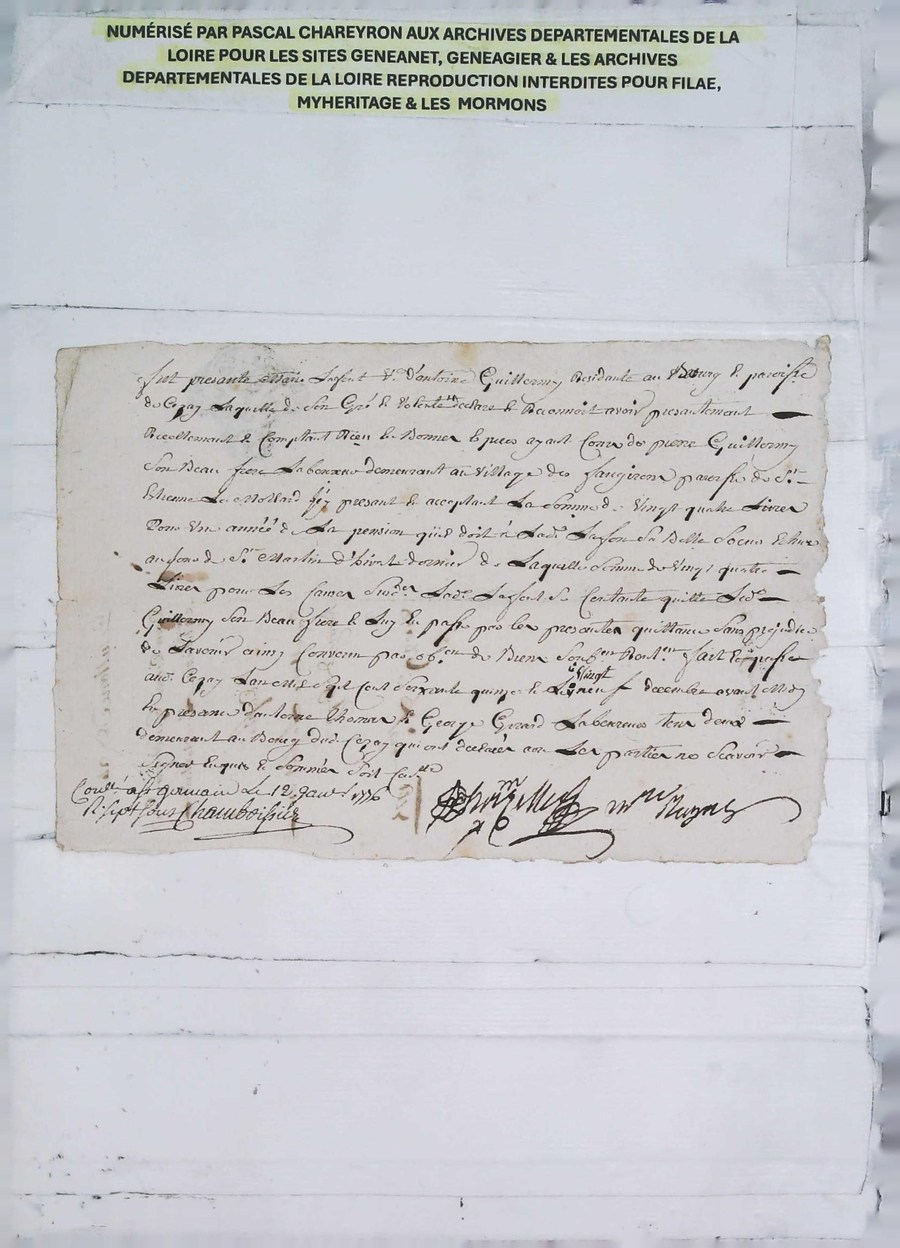 NUMÉRISÉ PAR PASCAL CHAREYRON AUX ARCHIVES DEPARTEMENTALES DE LA
LOIRE POUR LES SITES GENEANET, GENEAGIER & LES ARCHIVES
DEPARTEMENTALES DE LA LOIRE REPRODUCTION INTERDITES POUR FILAE,
MYHERITAGE & LES MORMONS
fut presante Marie Lafont Ve d'antoine Guillermy Residante au Bourg & paroisse
de Cezay Laquelle de Son Gré & Volonté declare & Reconnoit avoir presantement
Reellement & Comptant Receu de pierre Guillermy
Son Beau frere Laboureur demeurant au Village des paroisse de St
Etienne Le Mollard presant & acceptant La Somme de Vingt quatre Livres
Pour Une année de La pension qu'il doit à Lade Lafon Sa Belle Soeur Echue
au jour de St Martin d'hivert dernier de Laquelle Somme de Vingt quatre
Livres pour Les Causes Lade Lafont Se Contante quitte Led
Guillermy Son Beau frere & Luy En passe par les presantes quittance Sans prejudice
de Lavenir ainsy Convenu par de Biens fait & passé
aud Cezay L'an Mil Sept Cent Soixante quinze & Le Vingt neuf decembre avant Midy
En presance d'antoine Thomas & George Girard Laboureurs tous deux
demeurant au Bourg dud Cezay qui ont declaré avec Les parties ne Scavoir
Signer Enquis & Sommés
Conlé à st germain Le 12 janvr 1776
R. sept sous Chamboissier